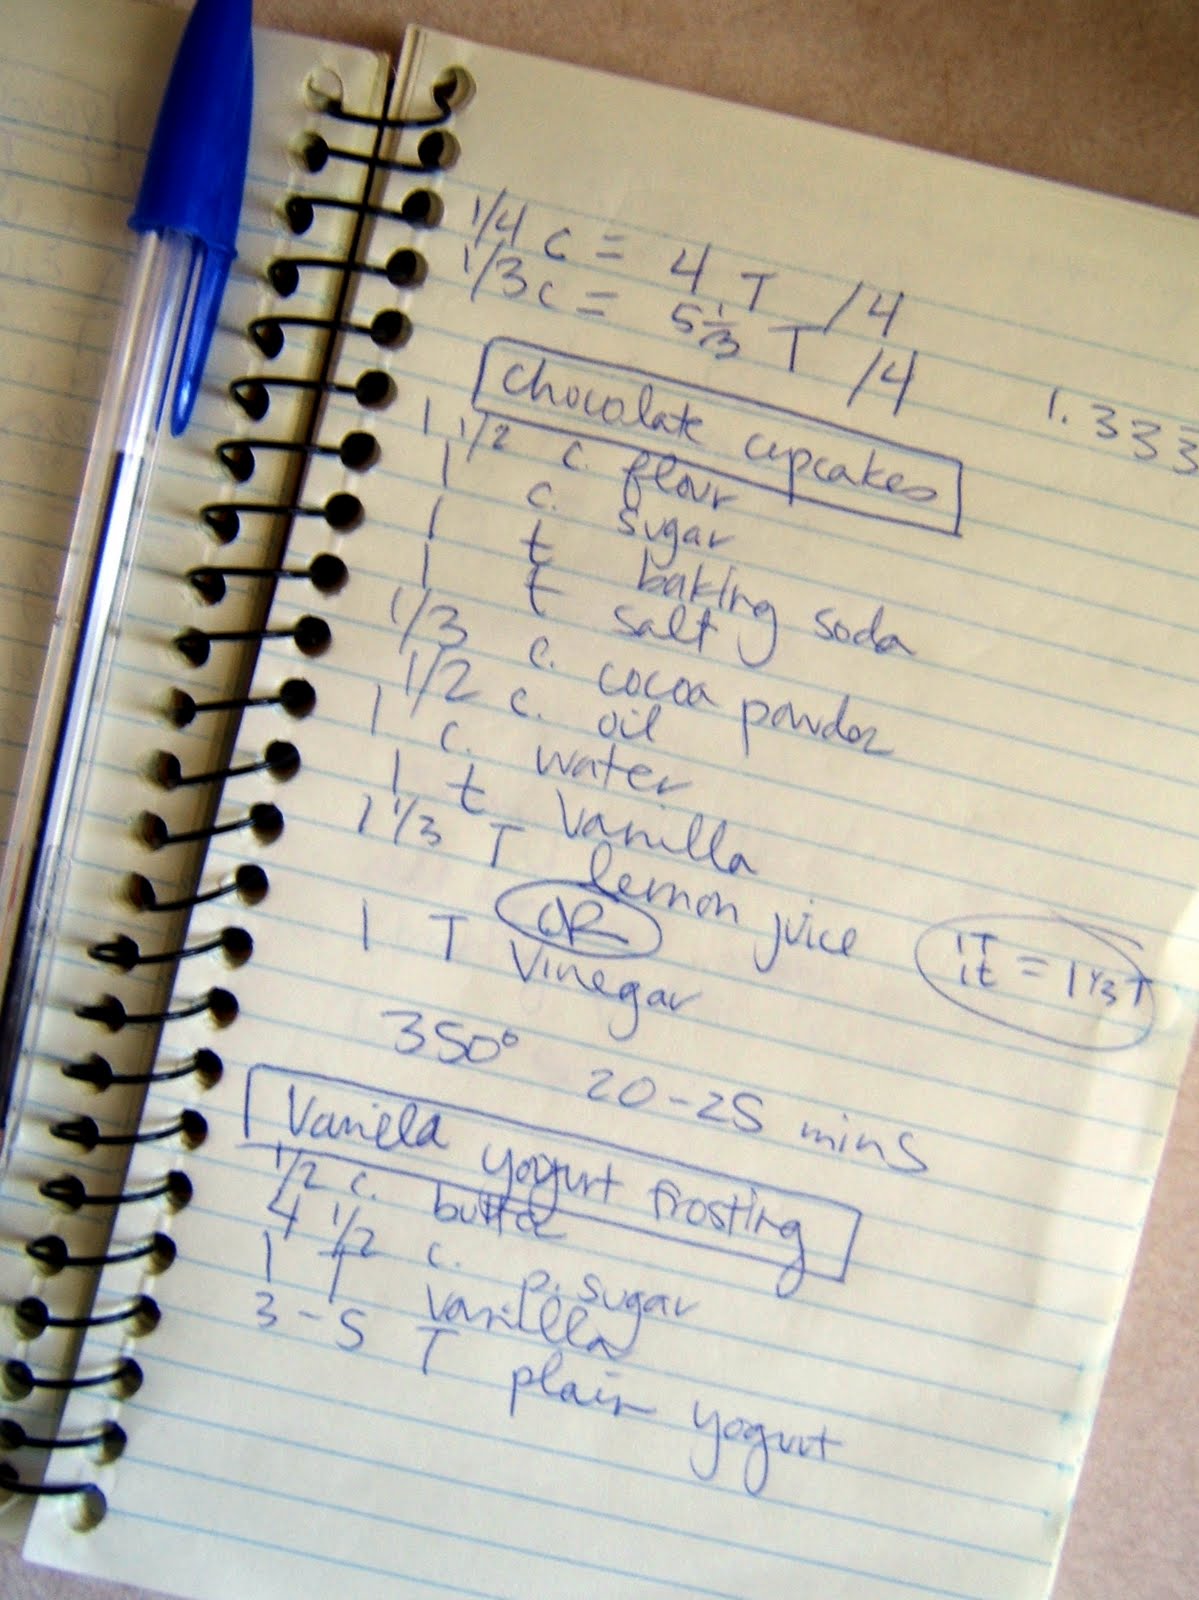 1/4 c = 4 T /4
1/3 c = 5 1/3 T /4
1.333
chocolate cupcakes
1 1/2 c. flour
1 c. sugar
1 t baking soda
1 t salt
1/3 c. cocoa powder
1/2 c. oil
1 c. water
1 t vanilla
1 1/3 T lemon juice
OR
1T
1t = 1 1/3 T
1 T vinegar
350° 20-25 mins
Vanilla yogurt frosting
1/2 c. butter
4 1/2 c. p. sugar
1 T vanilla
3-5 T plain yogurt